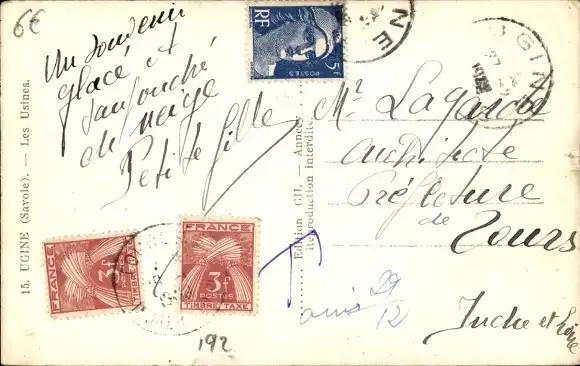 6€
Un souvenir
glacé et
saupoudré
de neige
Petite Gille
15. UGINE (Savoie). — Les Usines.
Edition GIL. — Annecy
Reproduction interdite.
RF
5F
POSTES
UGINE
Mr Lagarde
Architecte
Préfecture
de
Tours
Indre et Loire
FRANCE
3f
TIMBRE TAXE
FRANCE
3f
POSTES
TIMBRE TAXE
T
29
12
192